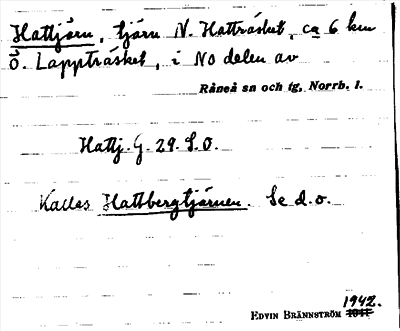 Hattjärn, tjärn N. Hatträsket, ca 6 km
Ö. Lappträsket, i NO delen av
Råneå sn och tg, Norrb. l.
Hattj. G. 29. S.O.
Kallas Hattbergtjärnen. Se d.o.
1942.
EDVIN BRÄNNSTRÖM